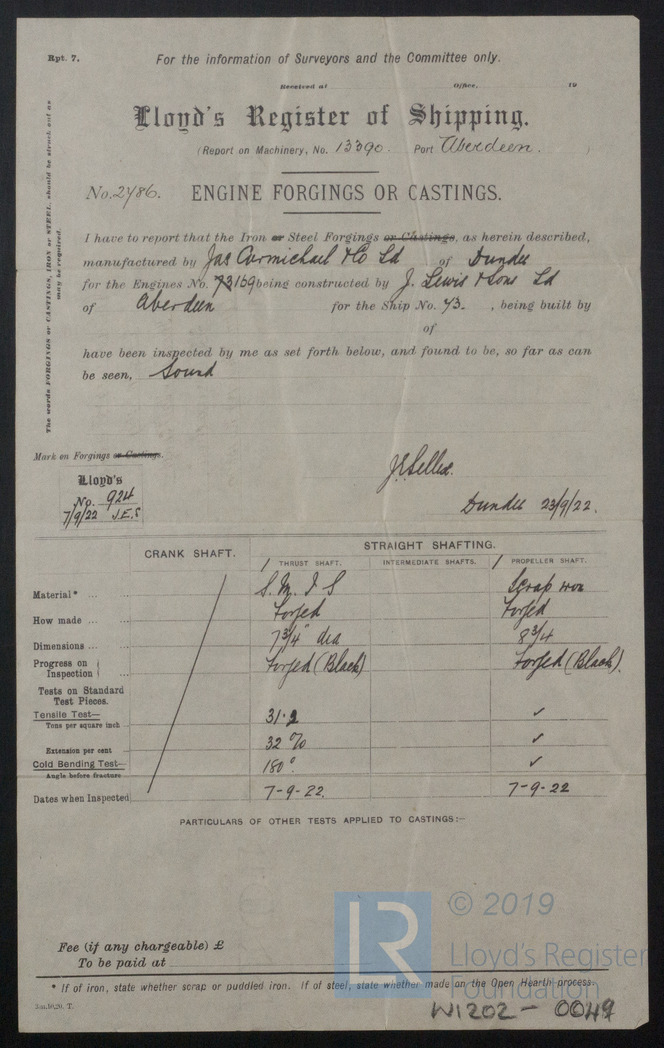 Rpt. 7.
For the information of Surveyors and the Committee only.
Received at Office, 19
Lloyd's Register of Shipping.
(Report on Machinery, No. 13390. Port Aberdeen. )
No. 2486. ENGINE FORGINGS OR CASTINGS.
The words FORGINGS or CASTINGS, IRON or STEEL, should be struck out as
may be required.
I have to report that the Iron or Steel Forgings or Castings, as herein described,
manufactured by Jas Carmichael & Co Ld of Dundee
for the Engines No. 73169 being constructed by J. Lewis & Sons Ld
of Aberdeen for the Ship No. 73. , being built by
of
have been inspected by me as set forth below, and found to be, so far as can
be seen, Sound
Mark on Forgings or Castings.
Lloyd's
No. 924
7/9/22 J.E.S
Dundee 23/9/22.
CRANK SHAFT. STRAIGHT SHAFTING.
1 THRUST SHAFT. INTERMEDIATE SHAFTS. 1 PROPELLER SHAFT.
Material* ... ... S. M. I S Scrap iron
How made ... ... Forged Forged
Dimensions ... ... 7 3/4" dia 8 3/4
Progress on
Inspection Forged (Black) Forged (Black).
Tests on Standard
Test Pieces.
Tensile Test—
Tons per square inch 31.2 ✓
Extension per cent 32 % ✓
Cold Bending Test—
Angle before fracture 180° ✓
Dates when Inspected 7-9-22. 7-9-22
PARTICULARS OF OTHER TESTS APPLIED TO CASTINGS:—
Fee (if any chargeable) £
To be paid at
* If of iron, state whether scrap or puddled iron. If of steel, state whether made on the Open Hearth process.
LR
© 2019
Lloyd's Register
Foundation
W1202 - 0049